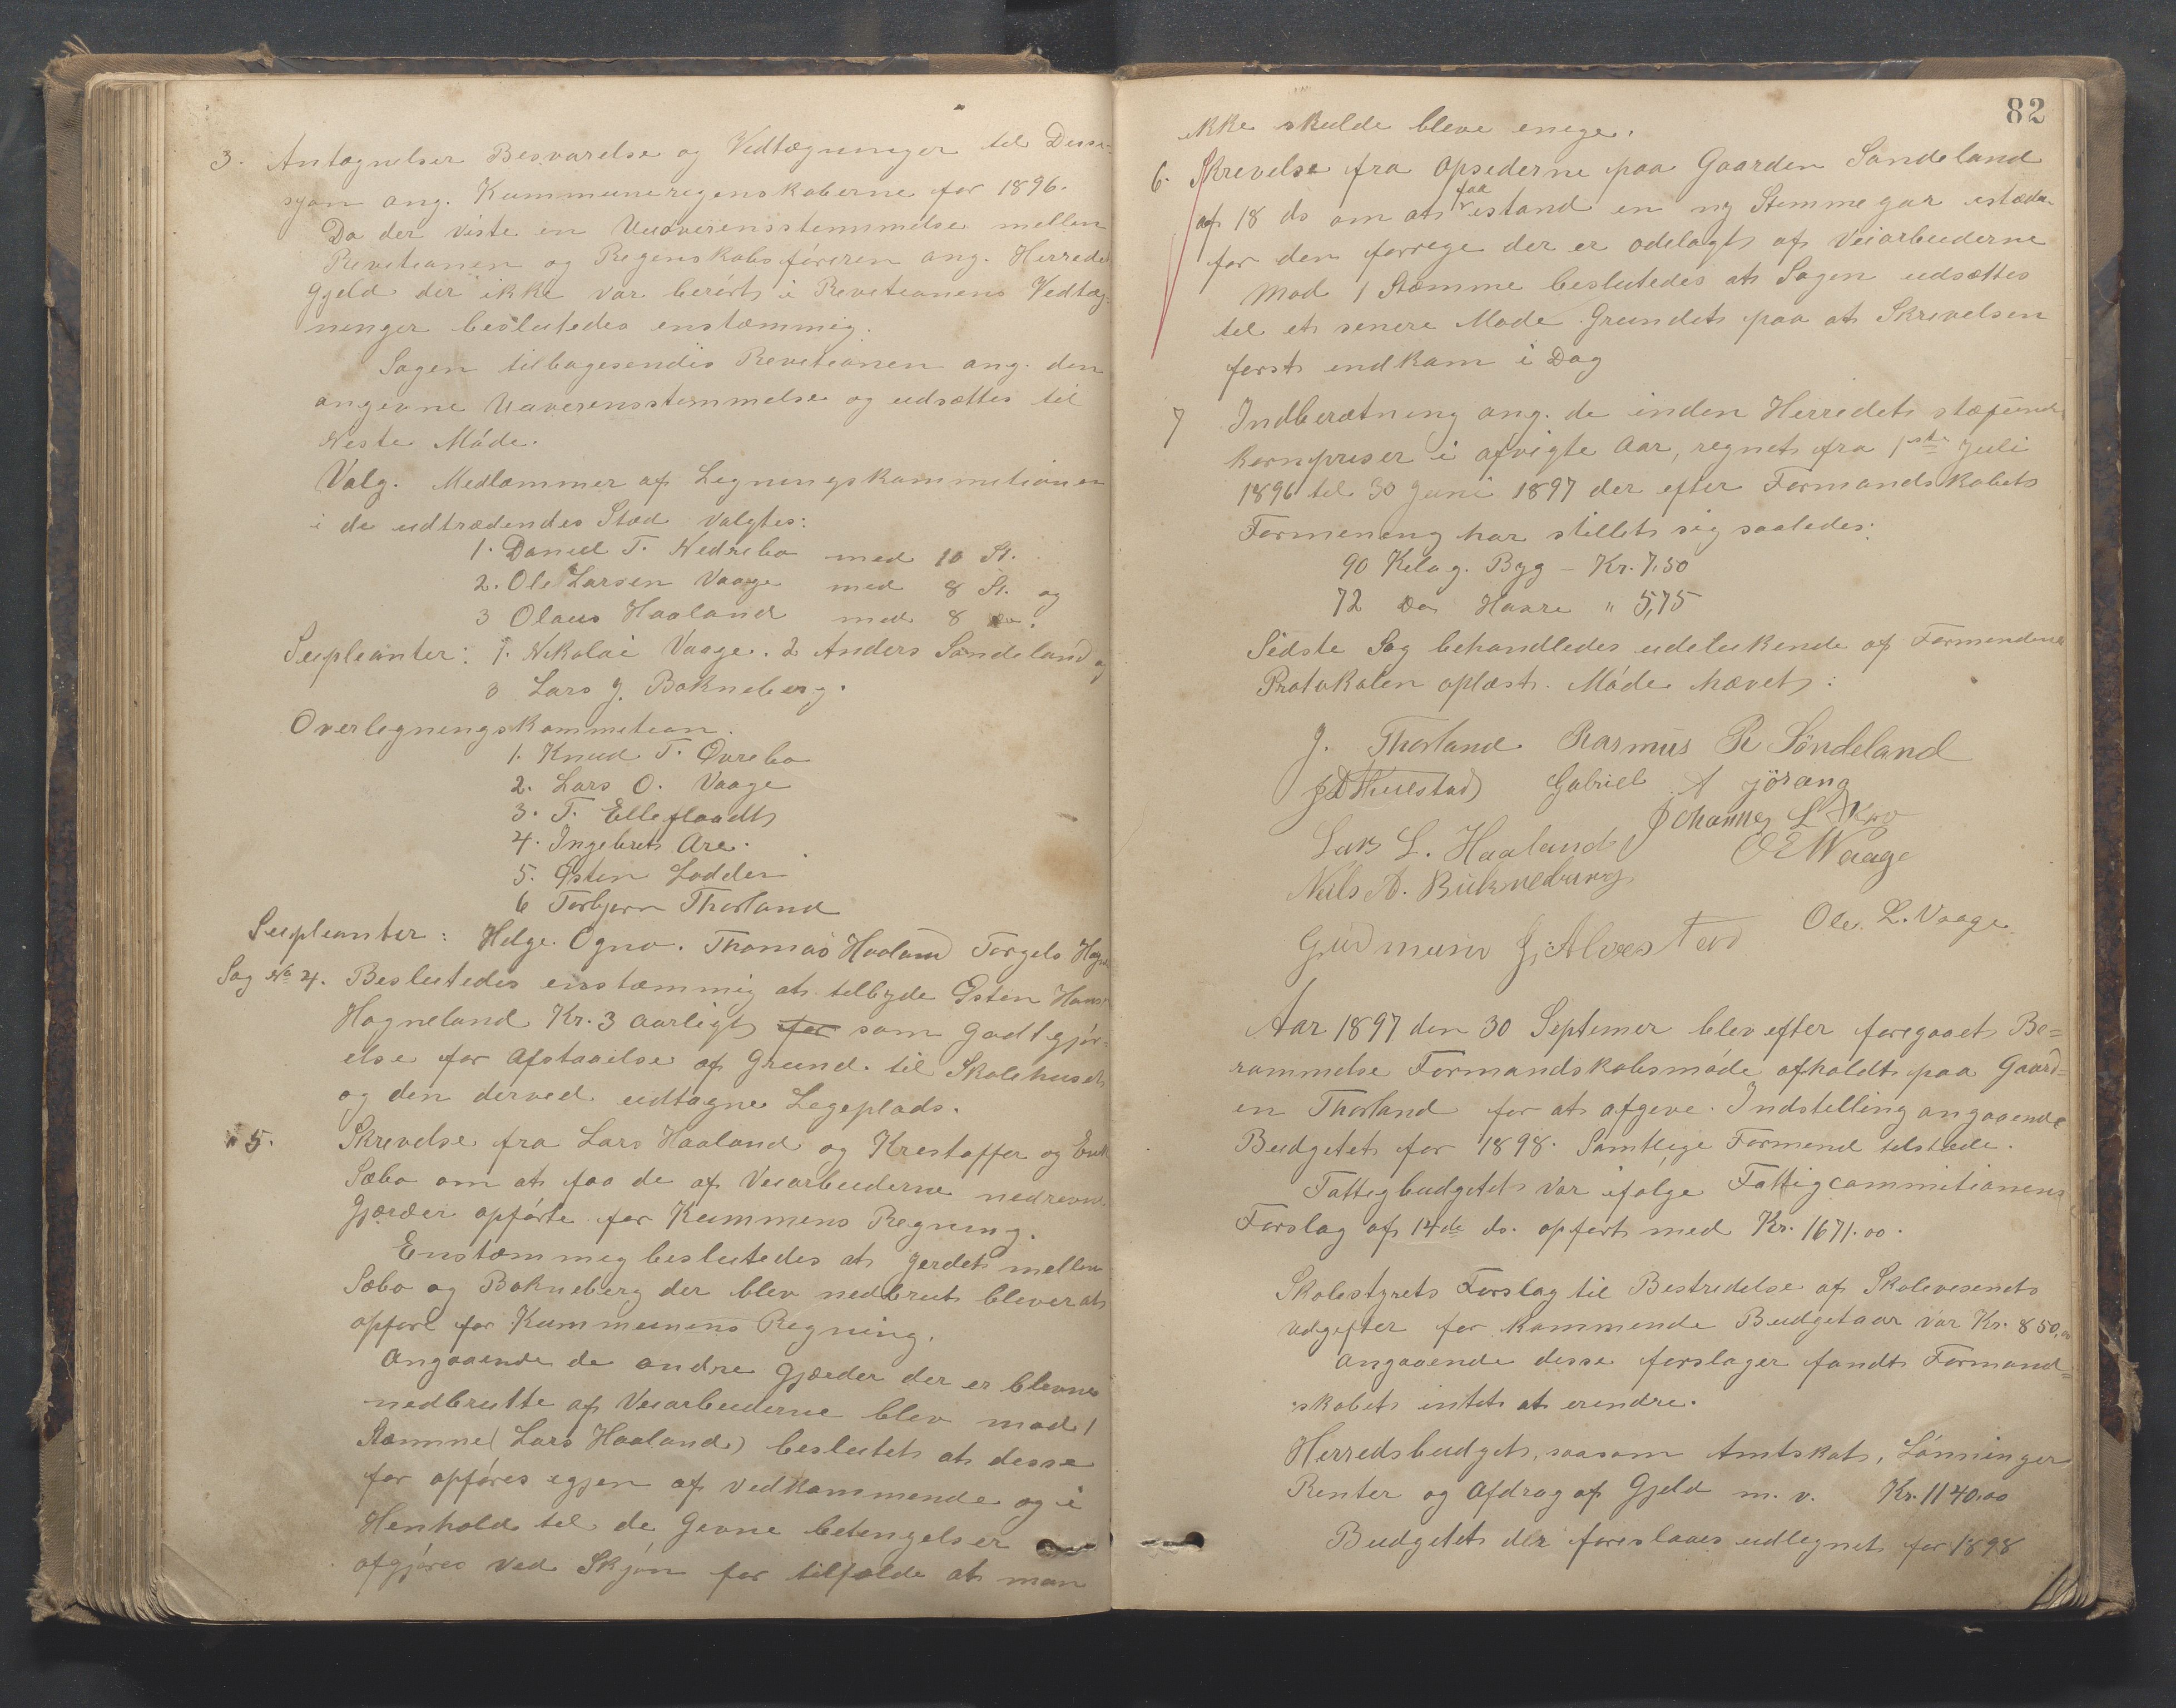 3. Antagnelser Besvarelse og Vedtægninger til Desse-
sjon ang. Kommuneregenskaberne for 1896.
Da der viste en Uuoverensstemmelse mellem
Revitionen og Regenskabsføreren ang. Herreds
gjeld der ikke var berørt i Revitionens Vedtæg-
ninger beslutedes enstæmmig.
Sagen tilbagesendes Revitionen ang. den
angivne Uoverensstemmelse og udsættes til
Neste Møde.
Valg. Medlæmmer af Legningskommitionen
i de udtrædendes Stæd valgtes:
1. Daniel T. Nedrebo med 10 St.
2. Ole Larsen Vaage med 8 St. og
3 Olaus Haaland med 8 do.
Supleanter: 1. Nikolai Vaage. 2 Anders Søndeland og
3 Lars J. Bokneberg.
Overlegningskommition.
1. Knud T. Øvrebo
2. Lars O. Vaage
3. T. Elleflaadt
4. Ingebret Are.
5. Østen Lodden
6 Torbjørn Thorland
Supleanter: Helge Ogno. Thomas Haaland Torgels
Sag No 4. Beslutedes enstæmmig at telbyde Østen Hans
Hogneland Kr. 3 aarligt for som Godtgjør-
else for Afstaaelse af Grund til Skolehuset
og den derved udtagne Legeplads.
" 5. Skrevelse fra Lars Haaland og Krestoffer og Erik
Sæbo om at faa de af Veiarbeiderne nedrevne
Gjærder opførte for Kommens Regning.
Enstæmmeg beslutedes at Jerdet mellem
Sæbo og Bokneberg der blev nedbrut blever at
opføre for Kommunens Regning.
Angaaende de andre Gjærder der er blevne
nedbrutte af Veiarbeiderne blev mod 1
Stæmme (Lars Haaland) beslutet at desse
for opføres egjen af vedkommende og i
Henhold til de Gevne betengelser
afgjøres ved Skjøn for tilfælde at man
82
ikke skulde bleve enege.
6. Skrevelse fra Opsederne paa Gaarden Søndeland
af 18 ds om at faa istand en ny Stemmegar istæden
for den forrege der er ødelagt af Veiarbeiderne
Mod 1 Stæmme beslutedes at Sagen udsættes
tel et senere Møde Grundet paa at Skrevelsen
først endkom i Dag
7 Indberætning ang. de inden Herredet stæfund-
kornpriser i afvigte Aar, regnet fra 1ste Juli
1896 tel 30 Juni 1897 der efter Formandskabets
Formening har stillet sig saaledes:
90 Kelog. Byg – Kr. 7.50
72 do Havre " 5,75
Sidste Sag behandledes udelukende af Formendene
Protokolen oplæst. Møde hævet:
J. Thorland Rasmus R Søndeland
Gabriel A jösang
Lars L. Haaland Johannes L
O E Waage
Nils A. Bukneburg
Gudmund G. Alvestad Ole L. Vaage
Aar 1897 den 30 Septemer blev efter foregaaet Be=
rammelse Formandskabsmøde afholdt paa Gaard=
en Thorland for at afgeve Indstelling angaaende
Budgetet for 1898. Samtlige Formend telstæde.
Fattegbudgetet var ifølge Fattigcommitionens
Forslag af 14de ds. opført med Kr. 1671.00.
Skolestyrets Forslag til Bestredelse af Skolevesenets
Udgifter for kommende Budgetaar var Kr. 850,00
Angaaende desse forslager fandt Formand=
skabet intet at erendre.
Herredsbudget, saasom Amtskat, Lønninger
Renter og Afdrag af Gjeld m. v. Kr. 1140.00
Budgetet der foreslaaes udlegnet for 1898